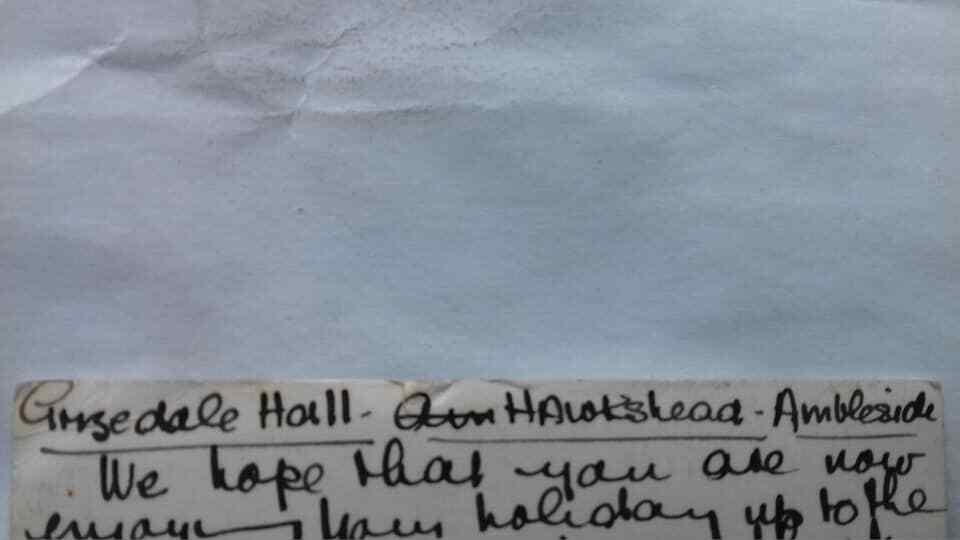 Grisedale Hall - Hawkshead - Ambleside
We hope that you are now
enjoying your holiday up to the